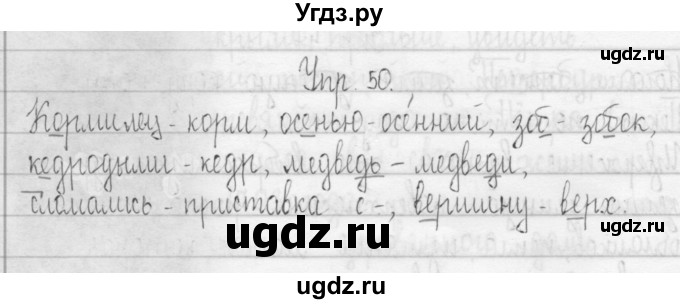 Угдз.ру
ugdz.ru
Упр. 50.
Кормилец - корм, осенью - осе́нний, зоб - зобок,
кедродыми - кедр, медведь - медведи,
сломались - приставка с-, вершину - верх.
ugdz.ru
ugdz.ru
ugdz.ru